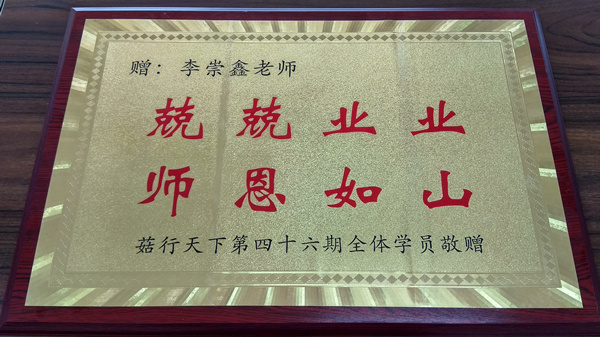 赠：李崇鑫老师
兢兢业业
师恩如山
菇行天下第四十六期全体学员敬赠